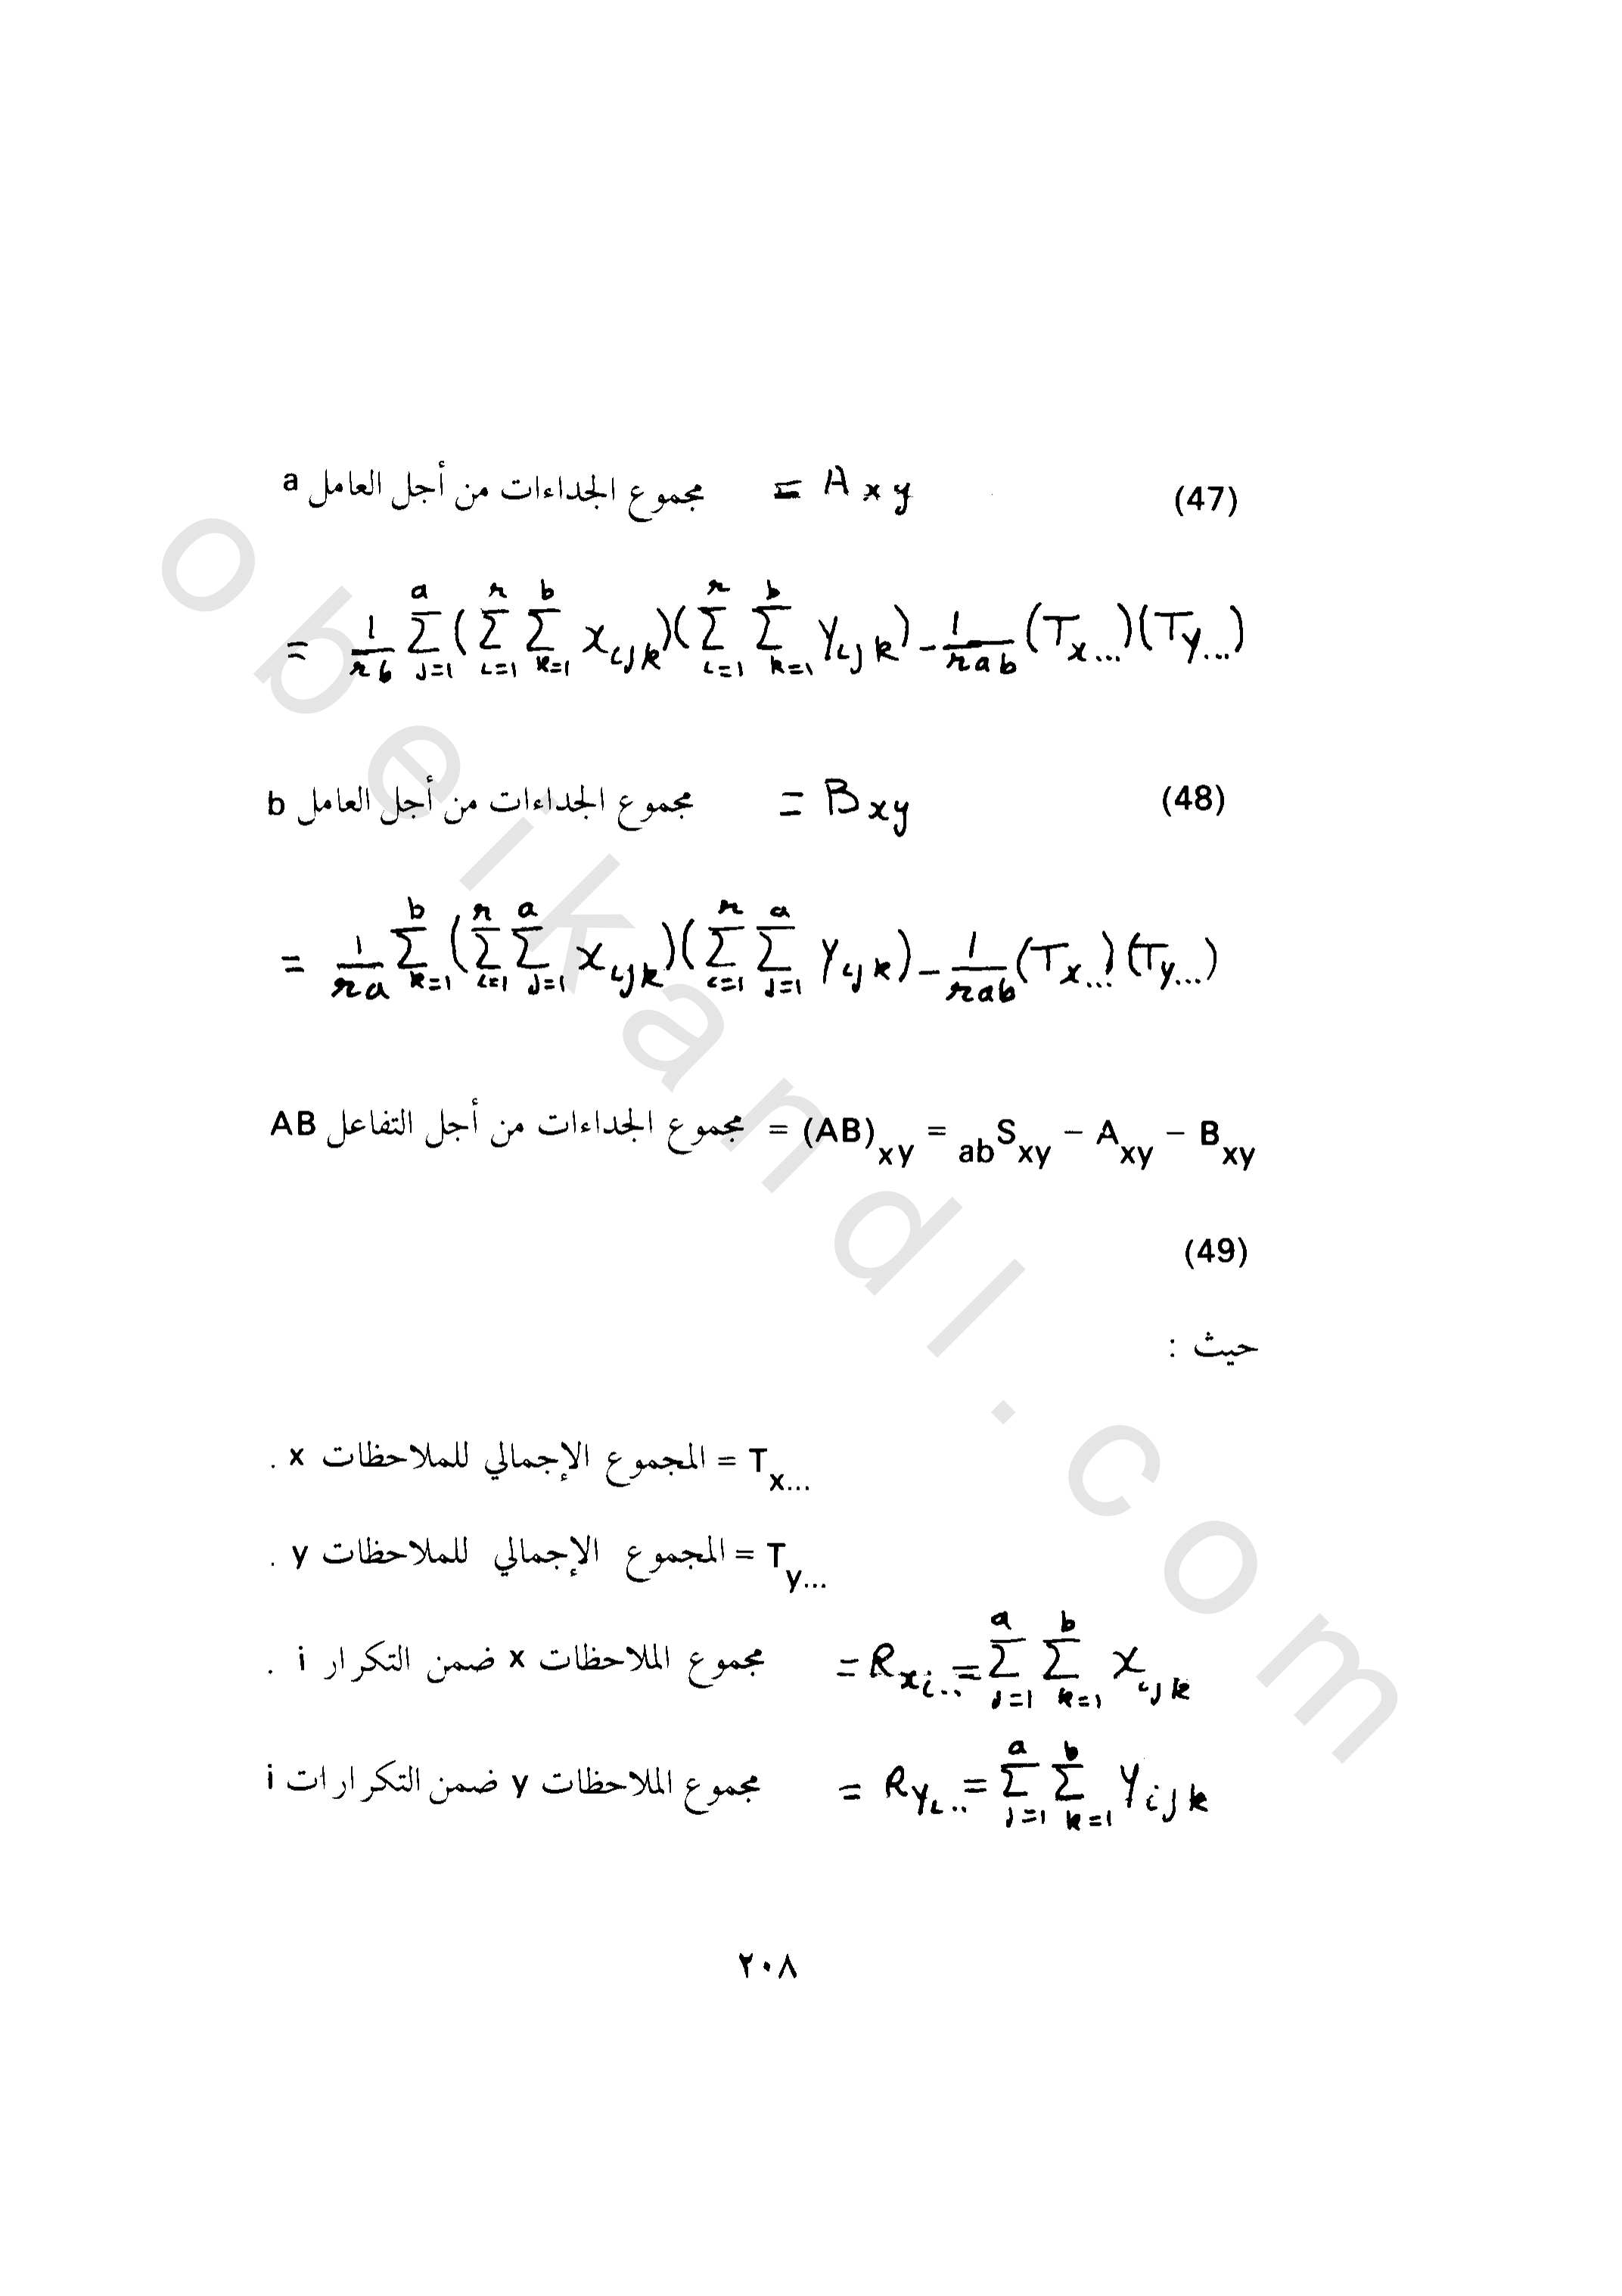 (47) A x y = مجموع الجداءات من أجل العامل a
= \frac{1}{rb} \sum_{j=1}^{a} (\sum_{i=1}^{r} \sum_{k=1}^{b} x_{ijk})(\sum_{i=1}^{r} \sum_{k=1}^{b} y_{ijk}) - \frac{1}{rab} (T_{x...})(T_{y...})
(48) B xy = مجموع الجداءات من أجل العامل b
= \frac{1}{ra} \sum_{k=1}^{b} (\sum_{i=1}^{r} \sum_{j=1}^{a} x_{ijk})(\sum_{i=1}^{r} \sum_{j=1}^{a} y_{ijk}) - \frac{1}{rab} (T_{x...})(T_{y...})
مجموع الجداءات من أجل التفاعل AB = (AB)_{xy} = _{ab}S_{xy} – A_{xy} – B_{xy}
(49)
حيث :
T_{x...} = المجموع الإجمالي للملاحظات x .
T_{y...} = المجموع الإجمالي للملاحظات y .
مجموع الملاحظات x ضمن التكرار i . = R_{xi..} = \sum_{j=1}^{a} \sum_{k=1}^{b} x_{ijk}
مجموع الملاحظات y ضمن التكرارات i = R_{yi..} = \sum_{j=1}^{a} \sum_{k=1}^{b} y_{ijk}
٢٠٨
obeikandl.com